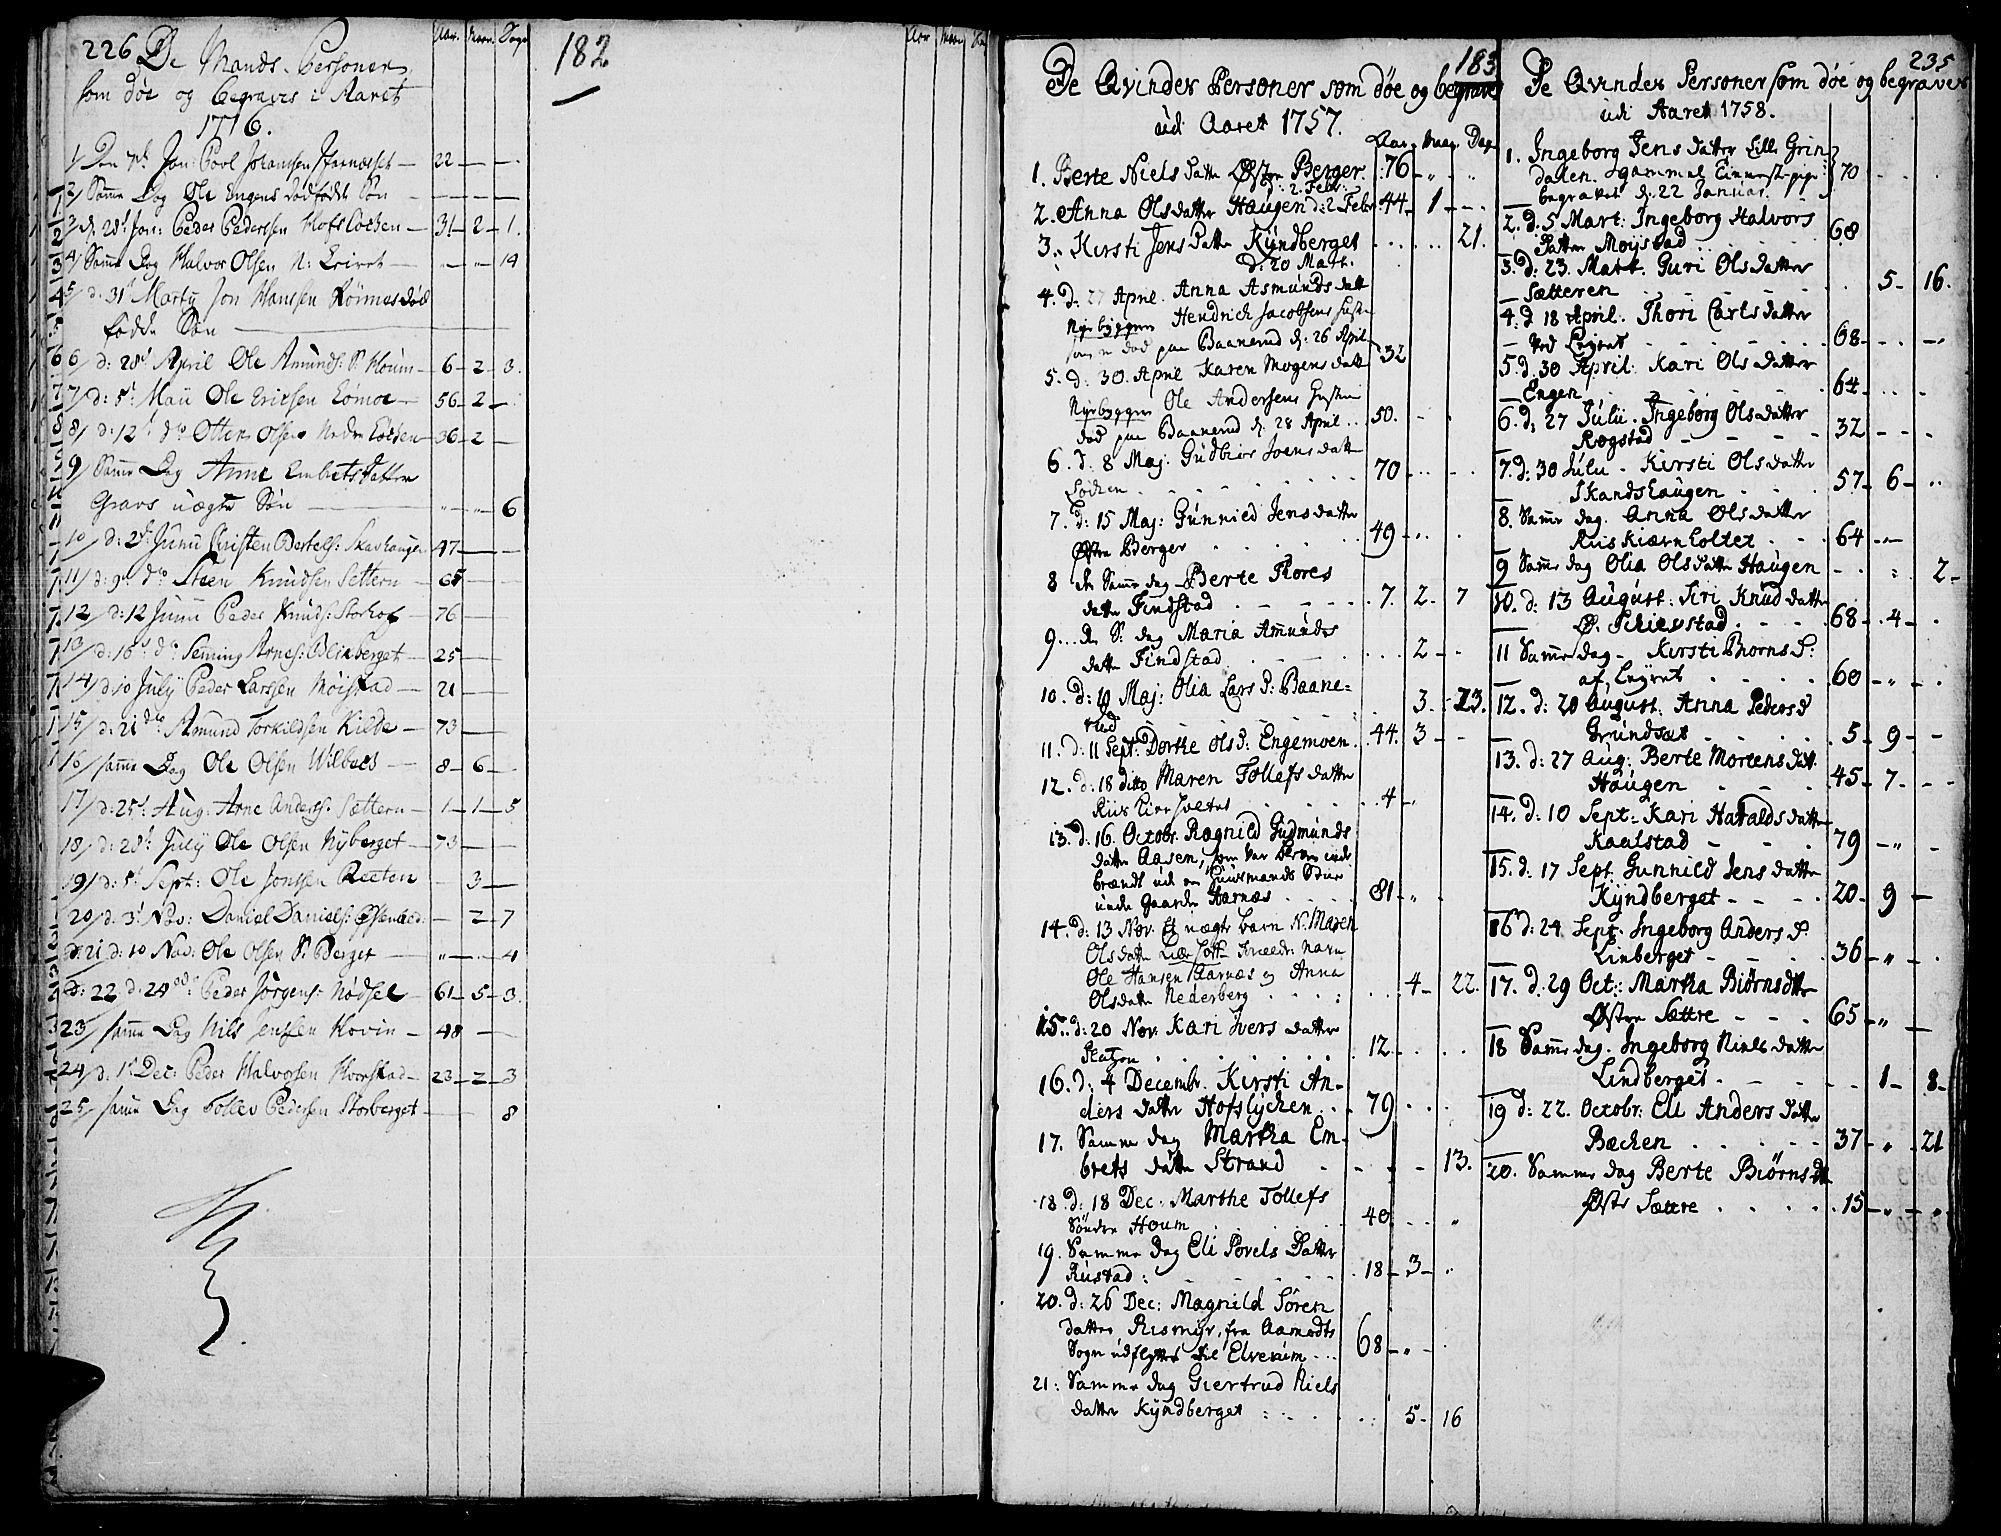 226 De Mands-Personer
som døe og begraves i Aaret
1776.
Aar. Maan. Dage
1/ Den 7de Jan: Povl Johansen Hernæsset — 22 — —
2/ Samme Dag Ole Engens dødfødde Søn — — —
3/ d. 28de Jan: Peder Pedersen Hofsløcken — 31 — 2 — 1.
4/ Samme Dag Halvor Olsen N: Leiret — „ — „ — 14
5/ d: 31te Martÿ Jon Hanssen Hørnæs død
fødde Søn —
6/ d: 28de April Ole Amunds: S: Houm — 6 — 2 — 3.
7/ d: 5te Maÿ Ole Ericksen Lømoe — 56 — 2 —
8/ d: 12te do Otter Olsen Nedre Løcken — 36 — 2 —
9/ Samme Dag Anne Embrets datter
Gravs uægte Søn — „ — „ 6
10/ d: 2den Junii Christen Bertels: Skavhaugen 47 — —
11/ d: 9de do Steen Knudsen Settern — 65 — —
12/ d: 12 Junii Peder Knuds: Storhof — 76 —
13/ d: 16de do Semming Arnes: Blixberget — 25 —
14/ d: 10 Julÿ Peder Larssen Moistad — 21 —
15/ d: 21 do Amund Torkildsen Kilde — 73 —
16/ samme Dag Ole Olsen Wilbers — 8 — 6 —
17/ d: 25de Aug: Arne Anders: Settern — 1 — 1 — 5
18/ d: 28de Julÿ Ole Olsen Nÿberget — 73 —
19/ d: 5te Sept: Ole Jonssen Reeten — 3 —
20/ d: 3de Nov: Daniel Daniels: — 2 — 7
21 d: 10 Nov: Ole Olsen S: Berget — „ — 4
22 d: 24de Peder Jørgens: Nødset — 61 — 5 — 3.
23/ samme Dag Nils Jenssen Hovin — 48 —
24/ d: 1te Dec: Peder Halvorsen Horrstad — 23 — 2 — 3
25/ samme Dag Tollev Pedersen Storberget — 8
182
Aar Maan Dag
183
De Qvinder Personer som døe og begraves
udi Aaret 1757.
Aar. Maan. Dage
1. Berte Niels Datter Østre Berger. 76 — „ — „
d: 2 Febr:
2. Anna Olsdatter Haugen d: 2 Febr 44 — 1 — —
3. Kirsti Jens Datter Kÿndberget . . . . . . 21.
d: 20 Mart.
4. D. 27 April. Anna Asmunds datt
Nÿebÿggeren Hendrich Jacobsens hustru
som er død paa Baanerud d: 26 April 32
5. d: 30. April Karen Mogens datt
Nÿebÿggeren Ole Andersens Hustru
død paa Baanerud d: 28 April . . 50.
6. d. 8 Maj. Gudbier Joens datt
Løcken . . . . . . 70
7. d: 15 Maj: Gunnild Jens datter
Østre Berger . . . . . 49
8 den Samme dag — Berte Thores
datter Findstad . . . . 7. 2. 7
9. . . d. S: dag Maria Amunds
datter Findstad . . . . . . 2 —
10. d: 19 Maj: Olia Lars D: Baane=
rud . . . 3. 23.
11. d: 11 Sept: Dorthe Ols D: Engemoen. . 44. 3 —
12. d. 18 ditto Maren Tollefs datter
Riis Kiernholtet . . . . . 4 —
13. d: 16. Octobr. Ragnild Gudmunds
datter Aasen, som var bleven inde
brændt ud en Huusmands Stue
under Gaarden Harnæs . . . . 81 — „
14. d: 13 Nov. Et uægte barn N: Maren
Olsdatter Forældre navn
Ole Hansen Harnæs og Anna
Olsdatter Nederberg . . . : . . 4 — 22.
15. d: 20 Nov. Kari Ivers datter
. . . . . . 12 — . .
16. d: 4 Decembr. Kirsti An-
ders datter Hofslÿcken . . 79 . .
17. Samme dag Martha Em-
brets datter Strand . — — — 13.
18. d: 18 Dec: Marthe Tollefs
Søndre Houm . . . 40. . . „
19. Samme dag Eli Povels Datter
Rustad: . . . . . 18 — 3 — „
20. d: 26 Dec: Magnild Søren
datter Rismÿr, fra Aamodts
Sogn udflÿttet til Elverum . . . 68 — „ —
21: Samme dag Giertrud Niels
datter Kÿndberget : . . . . 5 — 16
235
De Qvinder Personer som døe og begraves
udi Aaret 1758.
1. Ingeborg Jens datter Lille Grin-
dalen. gammel
begravet d: 22 Januar. 70
2. d: 5 Mart: Ingeborg Halvors
Datter Moÿstad . . . . 68
3. D: 23. Mart. Guri Olsdatter
Sætteren . . . . . 5 — 16.
4. d 18 April. Thori Carls datter
Ved Leÿret . . . . . 68 — . . —
5. d. 30 April: Kari Ols datter
Engen . . . . 64 — . .
6. d: 27 Julii. Ingeborg Olsdatter
Rogstad — — — 32 — — —
7. d: 30 Julii. Kirsti Olsdatter
Skandshaugen . . . 57 — 6 — „
8. Samme dag. Anna Olsdatter
Riis Kiærnholtet . . . 64 — „ —
9 Samme dag Olia Olsdatter Haugen — . . : . 2 —
10. d: 13 August: Siri Knud datter
Ø. Schierstad . . . . 68 — 4 — .
11 Samme dag — Kirsti Thorns D:
af Leÿret . . . . . 60 — „ — .
12. d: 20 August: Anna Peders d
Grundset . . . . . 5 — 9 — —
13. d: 27 Aug: Berte Mortens datt.
Haugen . . . . . 45 — 7 — —
14. d: 10 Sept: Kari Haralds datter
Kaalstad — . . . 79 — „ — .
15. d: 17 Sept. Gunnild Jens datter
Kÿndberget — — . . 20 — 9 —
16 d: 24 Sept. Ingeborg Anders D.
Linberget — — . . . 36 — „ — .
17. d. 29 Oct.: Martha Biørnsdtr
Østre Sættre — — . 65 — „ —
18 Samme dag. Ingeborg Niels datter
Lindberget — . . . . . 1 — 8 —
19 d: 22. Octobr: Eli Anders datter
Bæcken . . . . . 37 — „ . 21
20. Samme dag Berte Biørns dtr
Østre Sættre . . . . . 15 — „ — „